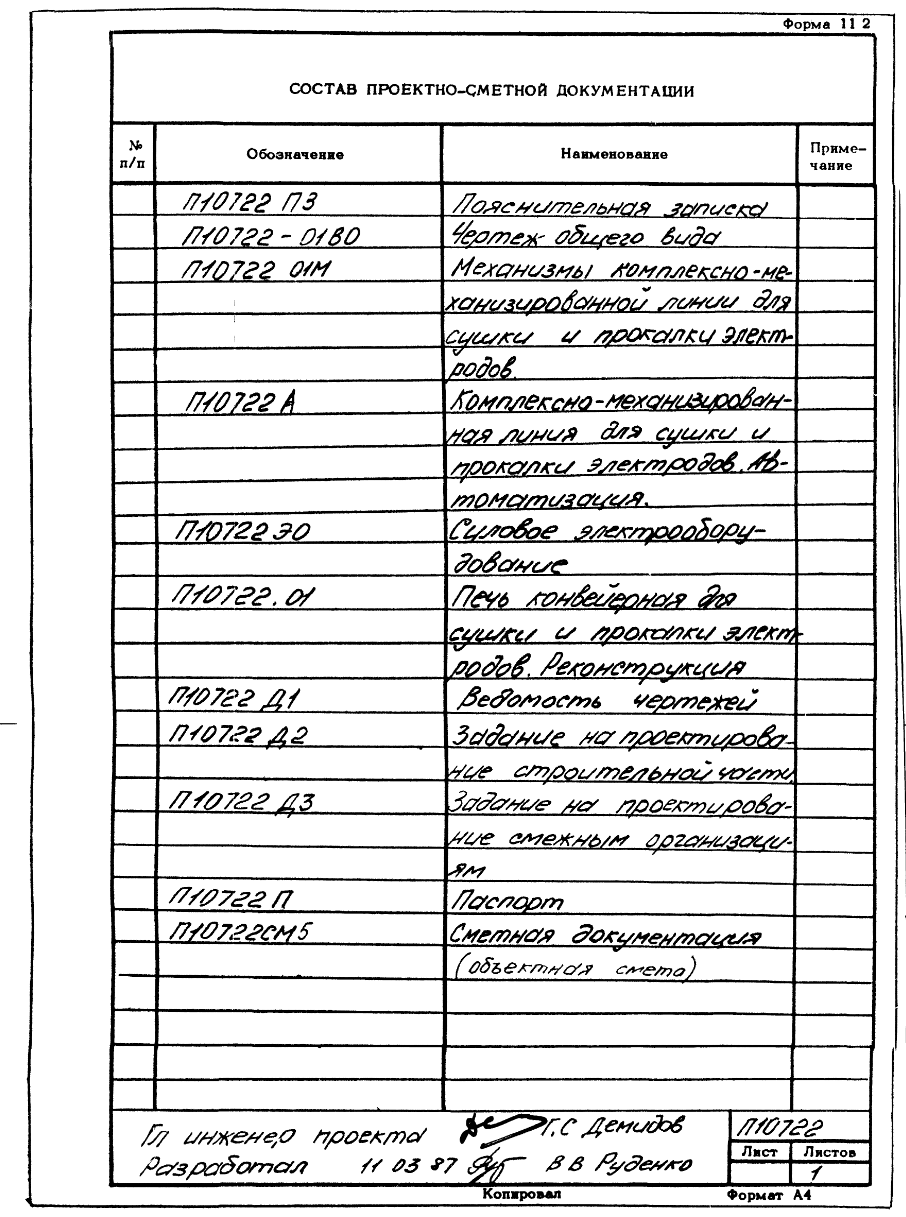 Форма 11 2
СОСТАВ ПРОЕКТНО-СМЕТНОЙ ДОКУМЕНТАЦИИ
№ п/п Обозначение Наименование Приме-
чание
П10722 ПЗ Пояснительная записка
П10722-01ВО Чертеж общего вида
П10722 01М Механизмы комплексно-ме-
ханизированной линии для
сушки и прокалки элект-
родов.
П10722 А Комплексно-механизирован-
ная линия для сушки и
прокалки электродов. Ав-
томатизация.
П10722 ЭО Силовое электрообору-
дование
П10722.01 Печь конвейерная для
сушки и прокалки элект-
родов. Реконструкция
П10722 Д1 Ведомость чертежей
П10722 Д2 Задание на проектирова-
ние строительной части.
П10722 Д3 Задание на проектирова-
ние смежным организаци-
ям
П10722 П Паспорт
П10722СМ5 Сметная документация
(объектная смета)
Гл инженер проекта Г.С Демидов П10722
Лист Листов
Разработал 11 03 87 В В Руденко 1
Копировал Формат А4